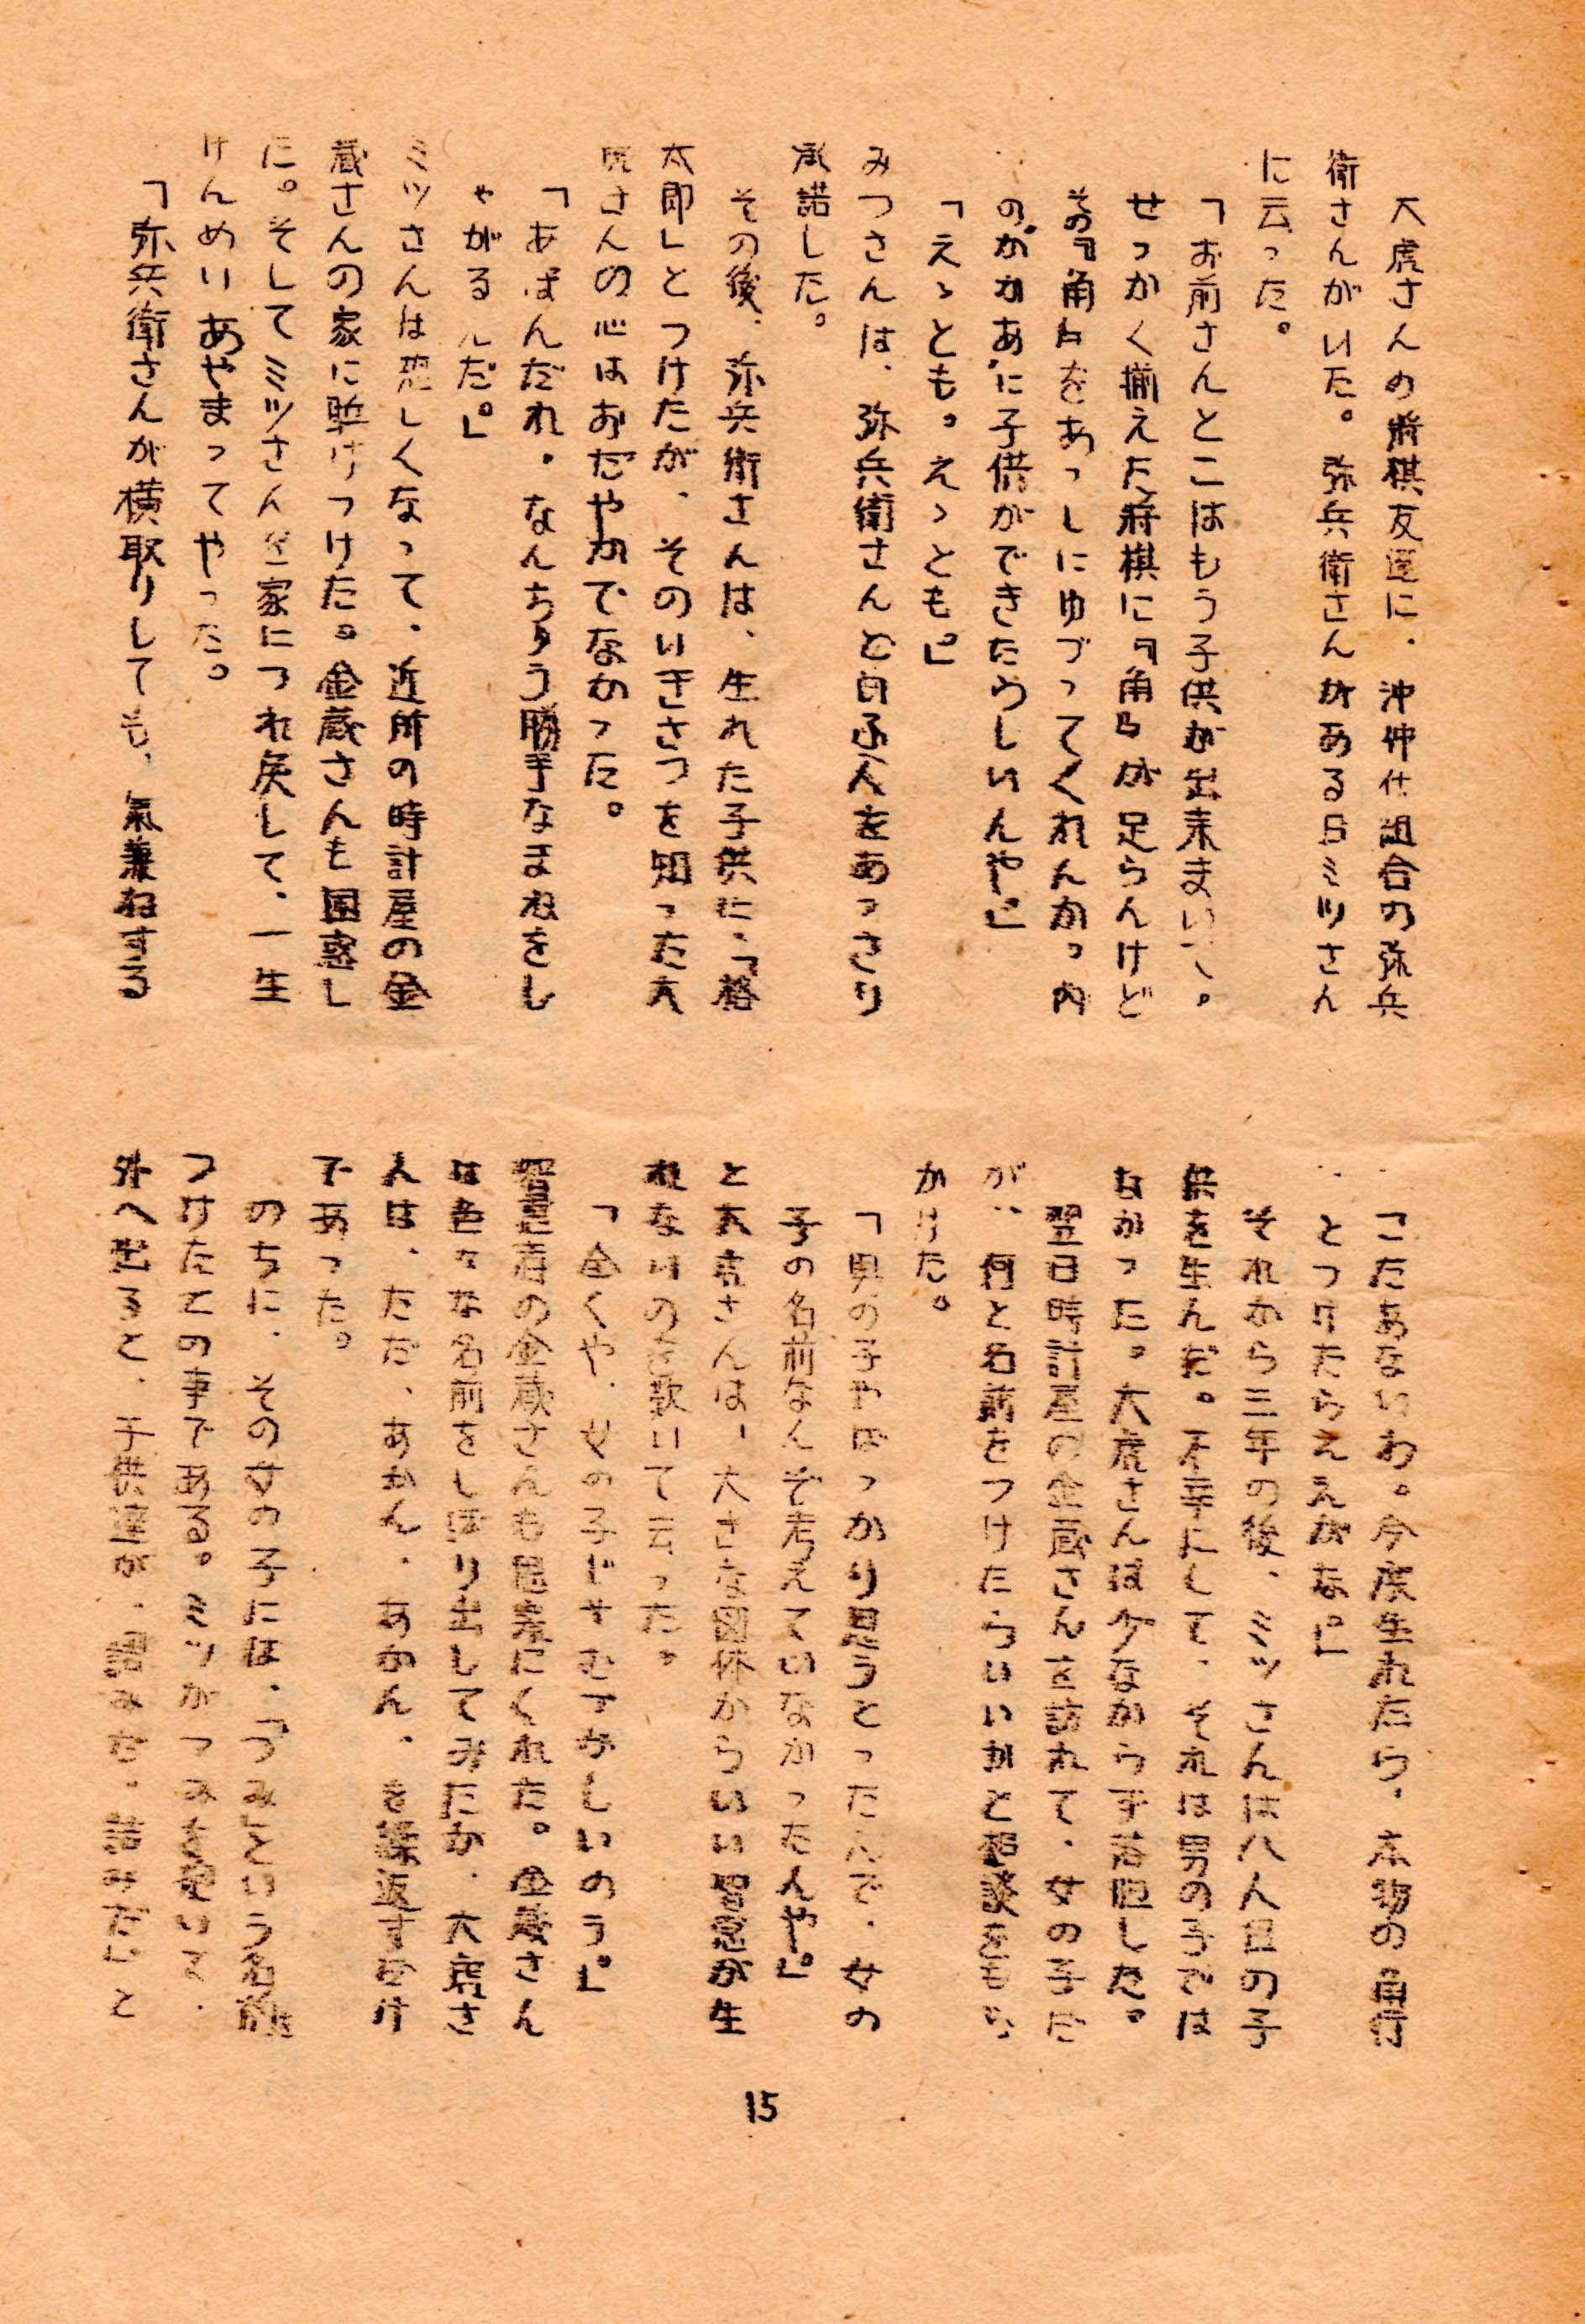 大虎さんの將棋友達に、沖仲仕組合の弥兵
衛さんがいた。弥兵衛さんがある日ミツさん
に云った。
「お前さんとこはもう子供が出来まいて。
せっかく揃えた將棋に『角』が足らんけど
その『角』をあっしにゆづってくれんか。内
のかかあに子供ができたらしいんや。」
「えゝとも。えゝとも。」
みつさんは、弥兵衛さんと自承人をあっさり
承諾した。
その後、弥兵衛さんは、生れた子供に、「格
太郎」とつけたが、そのいきさつを知った大
虎さんの心はおだやかでなかった。
「あばんだれ。なんちゅう勝手なまねをし
ゃがるんだ。」
ミツさんは恐しくなって、近所の時計屋の金
蔵さんの家に駈けつけた。金蔵さんも困惑し
た。そしてミツさんを家につれ戻して、一生
けんめいあやまってやった。
「弥兵衛さんが横取りしても、氣兼ねする
こたあないわ。今度生れたら、本物の角行
とつけたらええがな。」
それから三年の後、ミツさんは八人目の子
供を生んだ。不幸にして、それは男の子では
なかった。大虎さんは少なからず落胆した。
翌日時計屋の金蔵さんを訪れて、女の子だ
が、何と名前をつけたらいいかと相談をもち
かけた。
「男の子やばっかり思うとったんで、女の
子の名前なんぞ考えていなかったんや。」
と大虎さんは、大きな図体からいい智恵が生
れないのを歎いて云った。
「全くや、女の子じゃむづかしいのう。」
智恵者の金蔵さんも思案にくれた。金蔵さん
は色々な名前をしぼり出してみたが、大虎さ
んは、ただ、あかん、あかん、を繰返すだけ
であった。
のちに、その女の子には、「つみ」という名前
つけたとの事である。ミツがつみを抱いて、
外へ出ると、子供達が、詰みだ、詰みだ」と
15